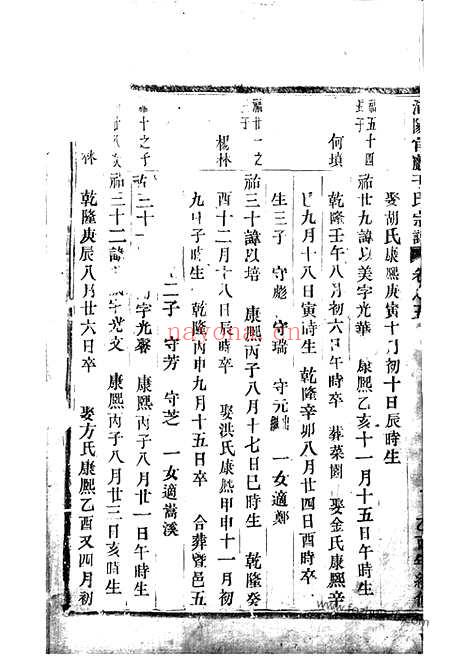 宗譜
娶胡氏康熙庚寅十月初十日辰時生
祐五十四
祐廿九諱以美字光華 康熙乙亥十一月十五日午時生
何墳
乾隆壬午八月初六日午時卒 葬菜園 娶金氏康熙辛
九月十八日寅時生 乾隆辛卯八月廿四日酉時卒
生三子 守彪 守瑞 守元 一女適鄭
廿一之子
祐三十諱以培 康熙丙子八月十七日巳時生 乾隆癸
楊林
酉十二月十八日時卒 娶洪氏康熙甲申十一月初
九日子時生 乾隆丙申九月十五日卒 合葬暨邑五
二子 守芳 守芝 一女適嵩溪
十之子
字光 康熙丙子八月廿一日午時生
三十二諱 字光文 康熙丙子八月廿三日亥時生
乾隆庚辰八月廿六日卒 娶方氏康熙乙酉又四月初
nayona.cn